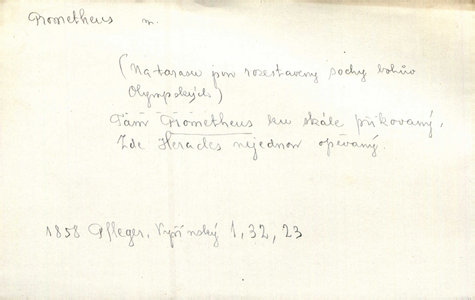 Prometheus m.
(Na tarasu jsou rozestaveny sochy bohův
Olympských)
Tam Prometheus ku skále přikovaný,
Zde Heracles nejednou opěvaný.
1858 Pfleger, Vyšínský 1, 32, 23